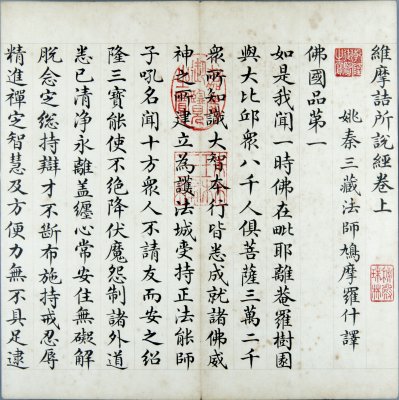 維摩詰所說經卷上
姚秦三藏法師鳩摩羅什譯
佛國品第一
如是我聞一時佛在毗耶離菴羅樹園
與大比丘衆八千人俱菩薩三萬二千
衆所知識大智本行皆悉成就諸佛威
神之所建立為護法城受持正法能師
子吼名聞十方衆人不請友而安之紹
隆三寶能使不絕降伏魔怨制諸外道
悉已清淨永離蓋纏心常安住無礙解
脫念定總持辯才不斷布施持戒忍辱
精進禪定智慧及方便力無不具足逮